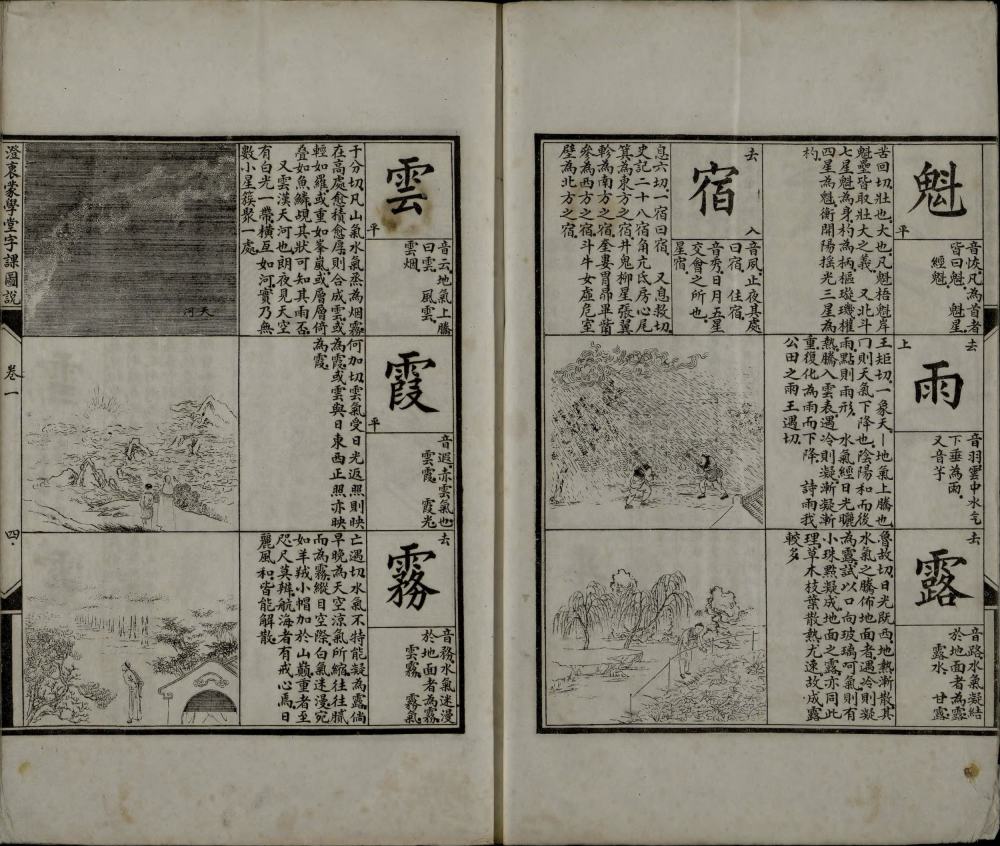 魁
平
音恢。凡為首者
皆曰魁。魁星
經魁。
苦回切。壯也。大也。凡魁梧魁岸
魁壘皆取壯大之義。又北斗
七星魁為身。杓為柄。樞璇璣權
四星為魁。衡開陽搖光三星為
杓。
宿
去
入
音夙。止夜其處
曰宿。住宿。
音秀。日月五星
交會之所也。
星宿。
息六切。一宿曰宿。又息救切。
史記二十八宿。角亢氐房心尾
箕為東方之宿。井鬼柳星張翼
軫為南方之宿。奎婁胃昴畢觜
參為西方之宿。斗牛女虛危室
壁為北方之宿。
雨
上
去
音羽。雲中水气
下垂為雨。
又音芋。
王矩切。一象天丨地氣上騰也
冂則天氣下降也。陰陽和而後
雨點則雨形。水氣經日光曬
熱騰入雲表遇冷則凝漸凝漸
重復化為雨而下降。詩雨我
公田之雨王遇切。
露
去
音路。水氣凝結
於地面者為露。
露水。甘露。
魯故切。日光既西。地熱漸散。其
水氣之騰佈地面者遇冷則凝
為露。試以口向玻璃呵氣則有
小珠點凝成。地面之露亦同此
理。草木枝葉散熱尤速。故成露
較多。
雲
平
音云。地氣上騰
曰雲。風雲。
雲烟。
于分切。凡山氣水氣蒸為烟霧
在高處愈積愈厚。則合成雲。或
輕如羅。或重如峯嵐。或層層倚
疊如魚鱗。現其狀可知其雨否。
又雲漢天河也。朗夜見天空
有白光一帶。橫亙如河。實乃無
數小星簇聚一處。
天河
霞
平
音遐。赤雲氣也。
雲霞。霞光。
何加切。雲氣受日光返照則映
為霞。或雲與日東西正照亦映
為霞。
霧
去
音務。水氣迷漫
於地面者為霧。
雲霧。霧氣。
亡遇切。水氣不特能凝為露。倘
早晚為天空涼氣所縮往往膩
而為霧。縱目空際。白氣迷漫。宛
如羊羢小帽加於山巔。重者至
咫尺莫辨。航海者有戒心焉。日
麗風和皆能解散。
澄衷蒙學堂字課圖說
卷一
四